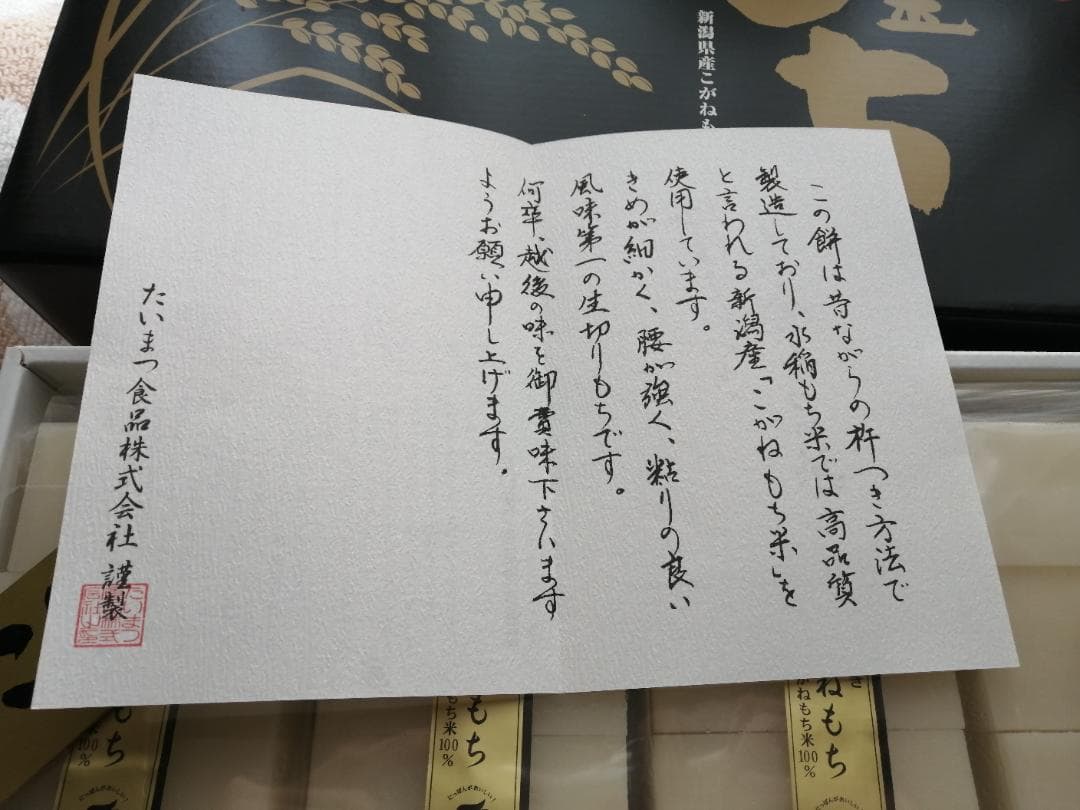 この餅は昔ながらの杵つき方法で
製造しており、水稲もち米では高品質
と言われる新潟産「こがねもち米」を
使用しています。
きめが細かく、腰が強く、粘りの良い
風味第一の生切りもちです。
何卒、越後の味を御賞味下さいます
ようお願い申し上げます。
たいまつ食品株式会社 謹製
新潟県産こがねも
ち
ねもち
がねもち米100%
もち
もち米100%
もち
米100%